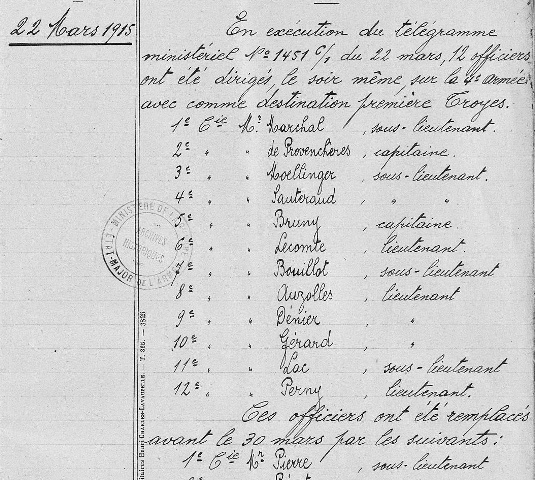 22 Mars 1915
En exécution du télégramme
ministériel No 1451 C/1 du 22 mars, 12 officiers
ont été dirigés, le soir même, sur la 4e armée
avec comme destination première Troyes.
1e Cie Mr. Marchal, sous-lieutenant.
2e " " de Provenchères, capitaine.
3e " " Moellinger, sous-lieutenant.
4e " " Sauteraud, " "
5e " " Bruny, capitaine.
6e " " Lecomte, lieutenant.
7e " " Bouillot, sous-lieutenant
8e " " Auzolles, lieutenant
9e " " Dénier, "
10e " " Gérard, "
11e " " Lac, sous-lieutenant
12e " " Perny, lieutenant.
Ces officiers ont été remplacés
avant le 30 mars par les suivants :
1e Cie Mr Pierre, sous-lieutenant
MINISTÈRE DE
ARCHIVES
HISTORIQUES
ETAT-MAJOR DE L'ARMÉE